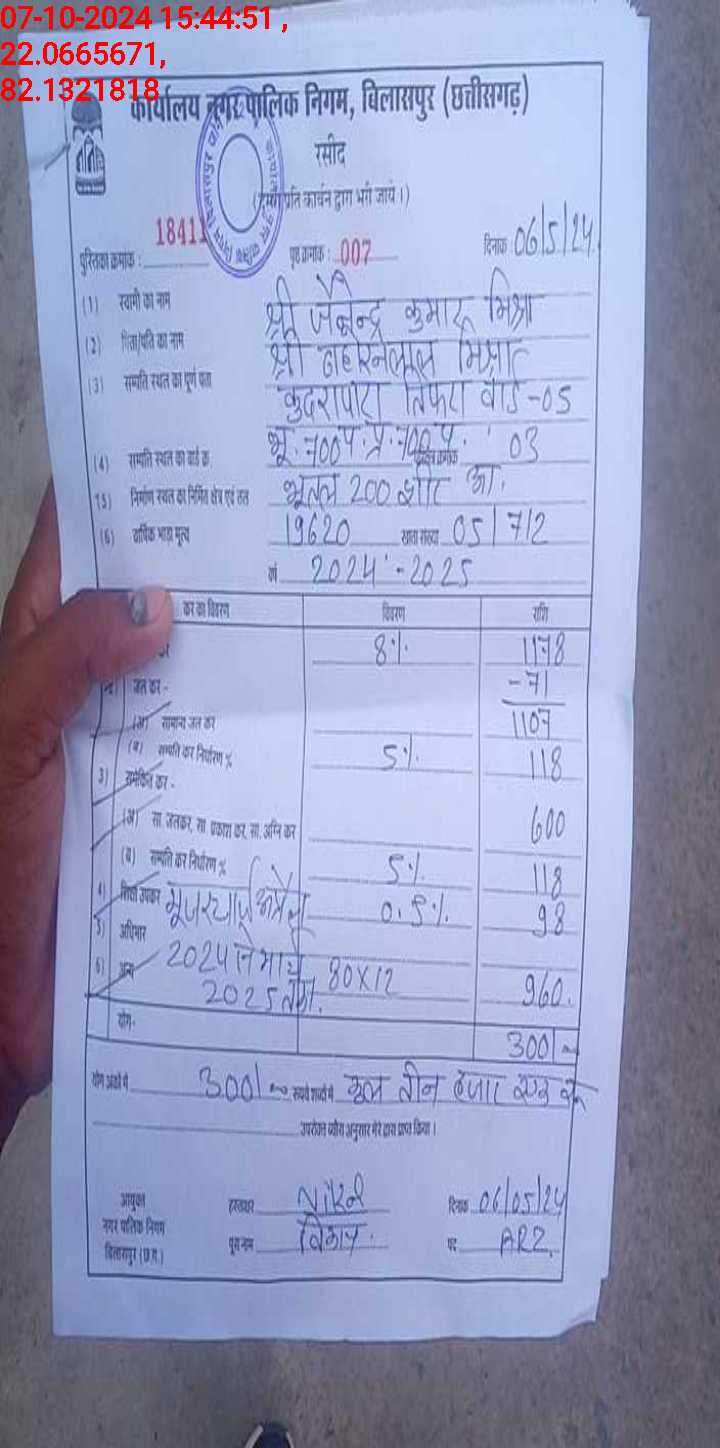 07-10-2024 15:44:51 ,
22.0665671,
82.1321818
कार्यालय नगर पालिक निगम, बिलासपुर (छत्तीसगढ़)
रसीद
प्रति कार्बन द्वारा भरी जाये।)
पुस्तिका क्रमांक : 18411 पृष्ठ क्रमांक : 007 दिनांक 06/5/24
(1) स्वामी का नाम श्री जैनेन्द्र कुमार मिश्रा
(2) पिता/पति का नाम श्री मिश्रा
(3) सम्पत्ति स्थल का पूर्ण पता कुदरापारा तिफरा वार्ड -05
(4) सम्पत्ति स्थल का वार्ड क्र. भू. 700 प्र. 700 क्रमांक 03
(5) निर्माण स्थल का निर्मित क्षेत्र एवं तल भूतल 200 शीट आ.
(6) वार्षिक भाड़ा मूल्य 19620 खाता संख्या 05/712
वर्ष 2024 - 2025
कर का विवरण विवरण राशि
कर 8% 1178
2) जल कर - - 71
(अ) सामान्य जल कर 1107
(ब) सम्पत्ति कर निर्धारण % 5% 118
3) समेकित कर -
(अ) सा. जलकर, सा. प्रकाश कर, सा. अग्नि कर 600
(ब) सम्पत्ति कर निर्धारण % 5% 118
4) शिक्षा उपकर 0.5% 98
5) अधिभार यूजर चार्ज अप्रैल
6) अन्य 2024 से मार्च 80X12 960.
2025 तक.
योग- 3001/-
योग अंकों में 3001/- रूपये शब्दों में कुल तीन हजार एक रू
उपरोक्त ब्यौरा अनुसार मेरे द्वारा प्राप्त किया।
आयुक्त हस्ताक्षर दिनांक 06/05/24
नगर पालिक निगम
बिलासपुर (छ.ग.) पूरा नाम पद ARI